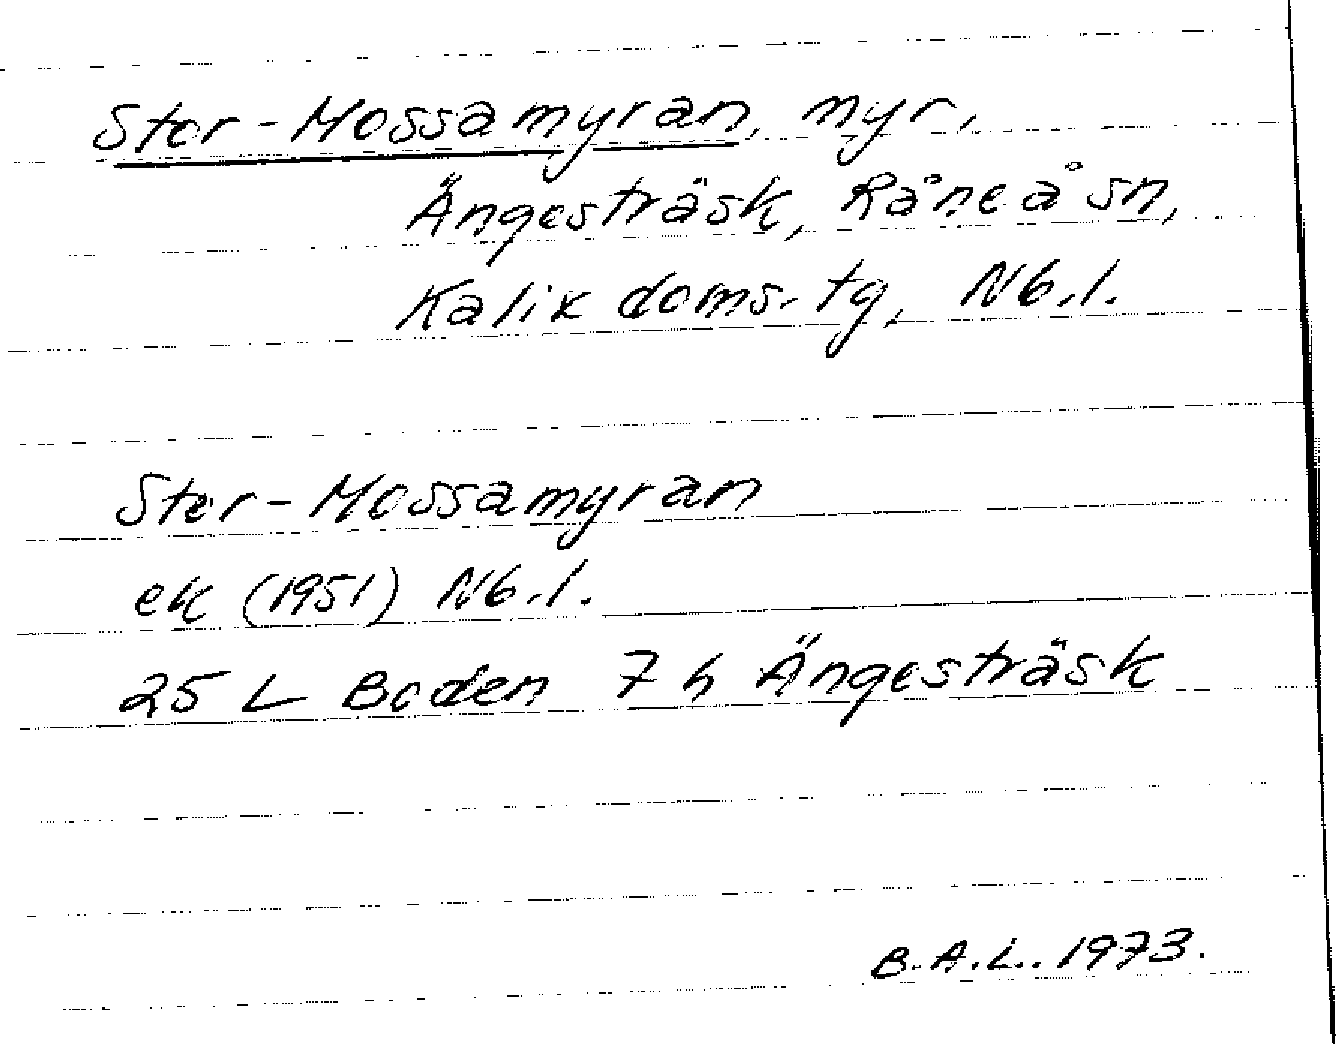 Stor-Mossamyran, myr,
Ängesträsk, Råneå sn,
Kalix doms. tg, Nb.l.
Stor-Mossamyran
ek (1951) Nb.l.
25 L Boden 7 h Ängesträsk
B.A.L. 1973.